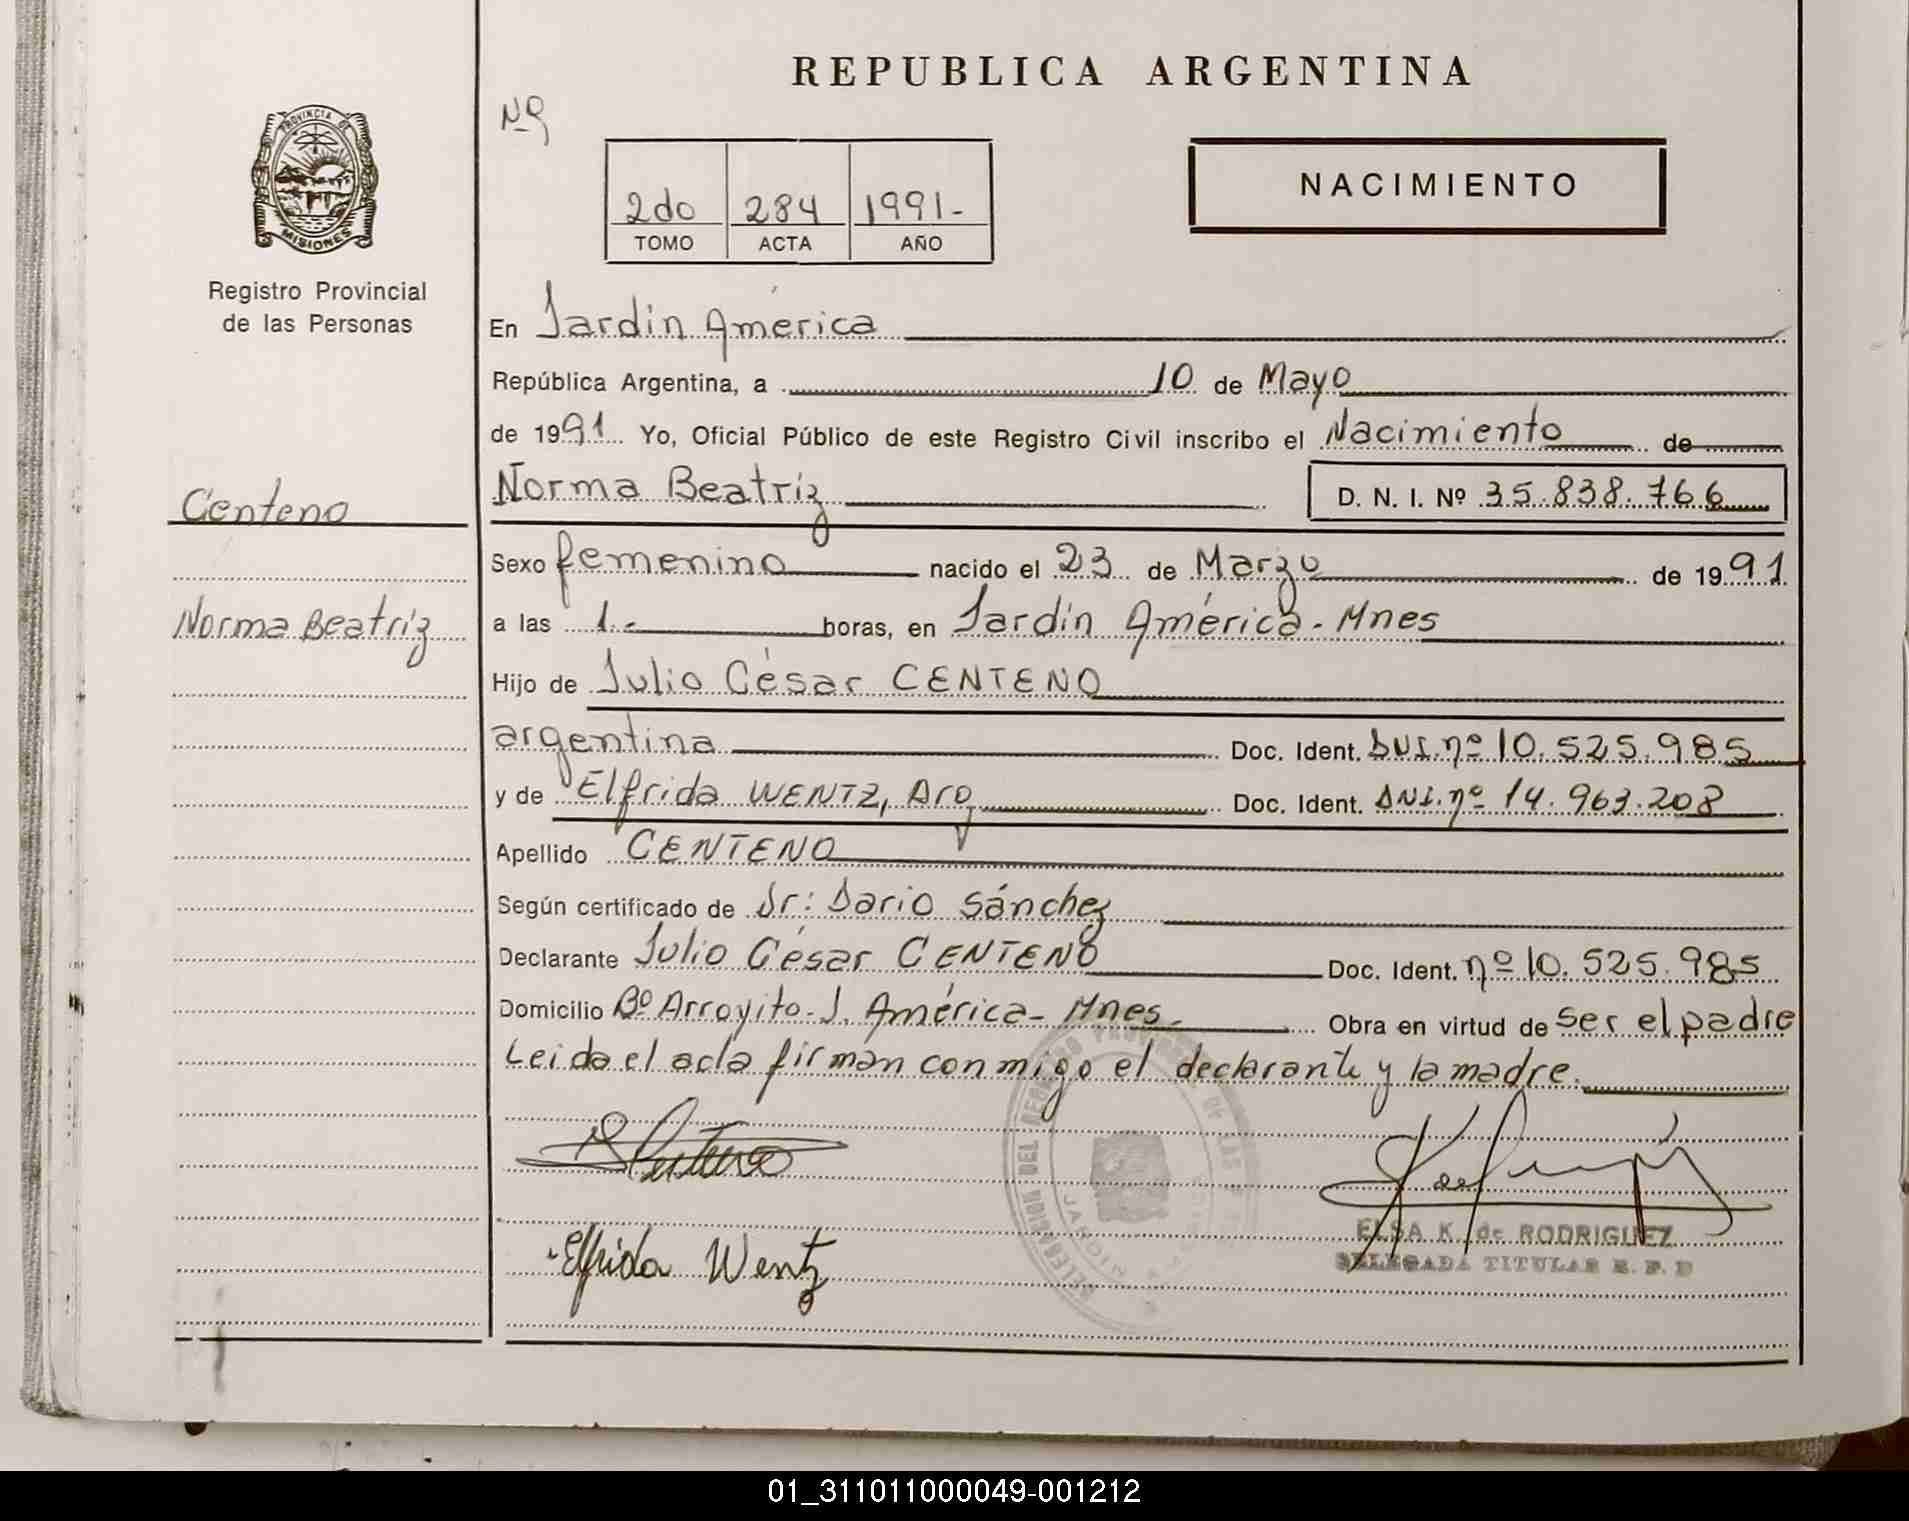 REPUBLICA ARGENTINA
Nº
2do 284 1991-
TOMO ACTA AÑO
NACIMIENTO
PROVINCIA DE
MISIONES
Registro Provincial
de las Personas
Centeno
Norma Beatriz
En Jardín América
República Argentina, a 10 de Mayo
de 1991 Yo, Oficial Público de este Registro Civil inscribo el Nacimiento de
Norma Beatriz D. N. I. Nº 35.838.766
Sexo femenino nacido el 23 de Marzo de 1991
a las 1.- horas, en Jardín América - Mnes
Hijo de Julio César CENTENO
argentina Doc. Ident. DNI. nº 10.525.985
y de Elfrida WENTZ, Arg Doc. Ident. DNI. nº 14.963.208
Apellido CENTENO
Según certificado de Dr: Dario Sánchez
Declarante Julio César CENTENO Doc. Ident. nº 10.525.985
Domicilio Bº Arroyito - J. América - Mnes - Obra en virtud de ser el padre
Leida el acta firman conmigo el declarante y la madre.
Centeno
Elfrida Wentz
ELSA K. de RODRIGUEZ
DELEGADA TITULAR R. P. P
01_311011000049-001212